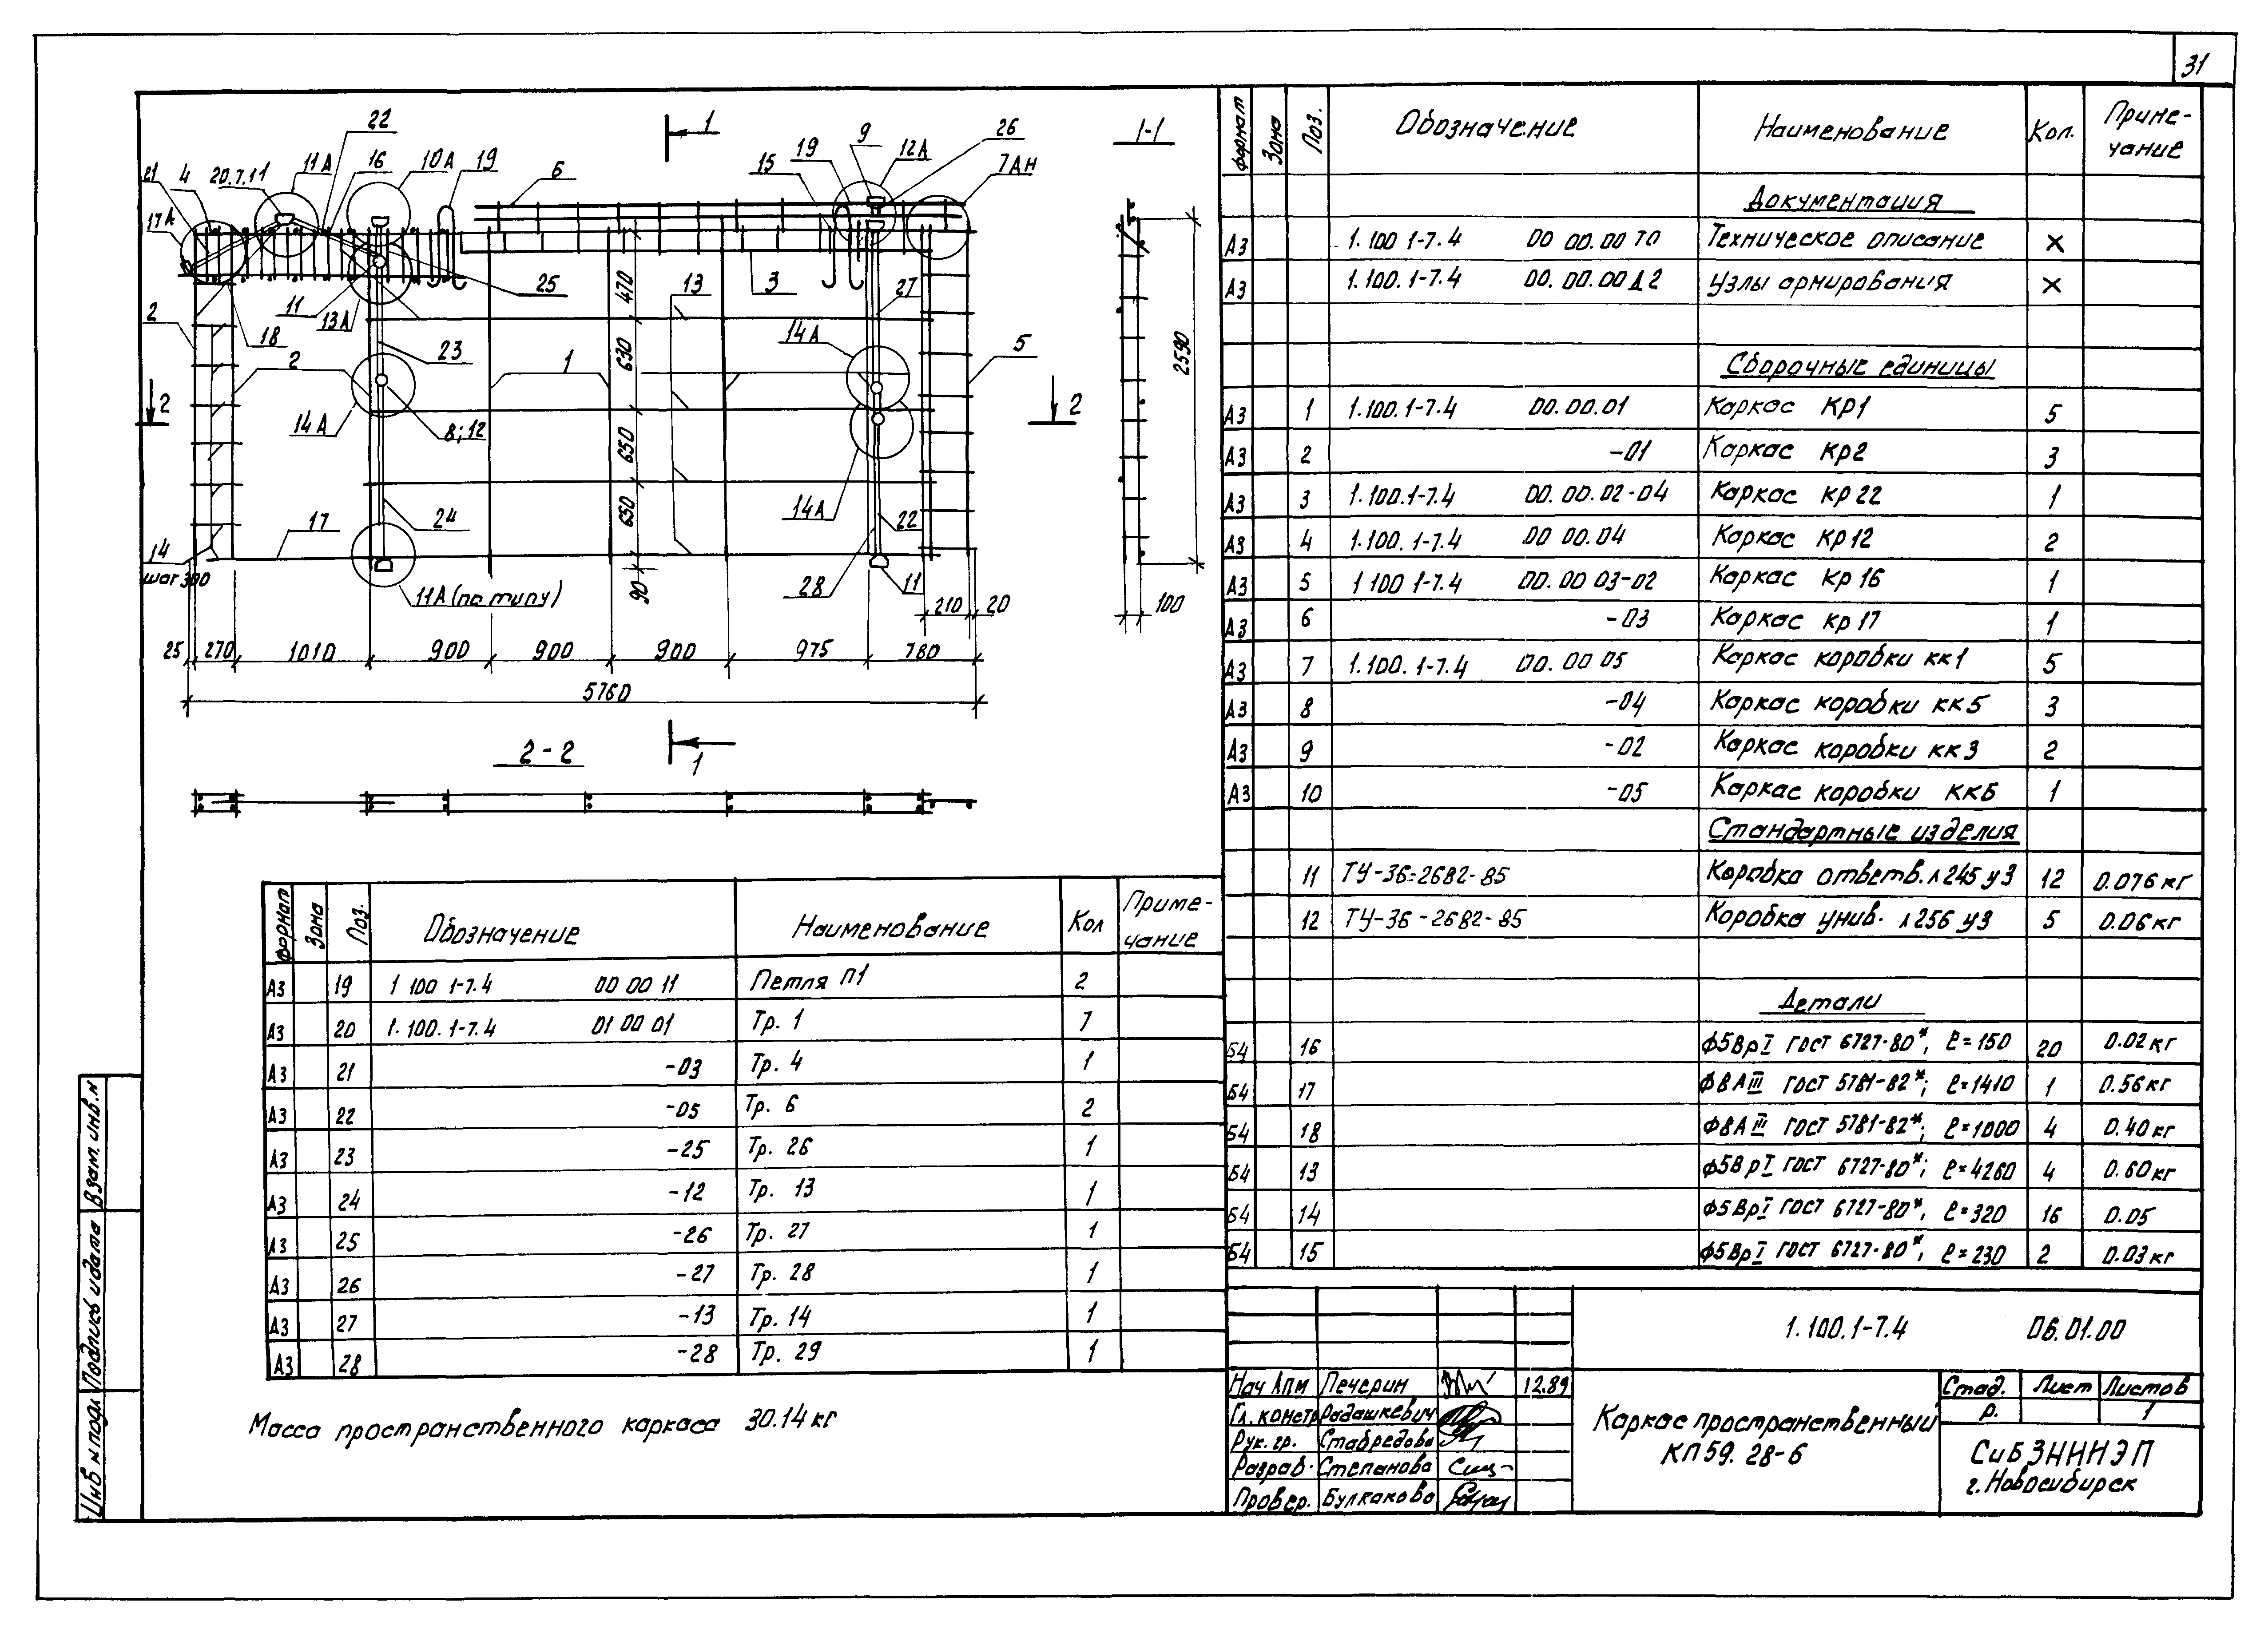 31
1
1-1
22
11А
16
10А
19
20.7.11
4
21
17А
6
15
19
9
12А
26
7АН
2
18
11
13А
25
13
3
27
470
23
2
14А
8; 12
1
630
14А
5
2590
2
2
650
14А
24
17
650
22
14
шаг 300
11А (по типу)
90
28
11
210
20
100
25
270
1010
900
900
900
975
780
5760
2-2
1
формат Зона Поз. Обозначение Наименование Кол. Приме-
чание
Документация
А3 1.100 1-7.4 00 00.00 ТО Техническое описание X
А3 1.100.1-7.4 00.00.00Д2 Узлы армирования X
Сборочные единицы
А3 1 1.100.1-7.4 00.00.01 Каркас КР1 5
А3 2 -01 Каркас КР2 3
А3 3 1.100.1-7.4 00.00.02-04 Каркас КР22 1
А3 4 1.100.1-7.4 00 00.04 Каркас КР12 2
А3 5 1 100 1-7.4 00.00 03-02 Каркас КР16 1
А3 6 -03 Каркас КР17 1
А3 7 1.100.1-7.4 00.00 05 Каркас коробки КК1 5
А3 8 -04 Каркас коробки КК5 3
А3 9 -02 Каркас коробки КК3 2
А3 10 -05 Каркас коробки КК6 1
Стандартные изделия
11 ТУ-36-2682-85 Коробка ответв. Л245 У3 12 0.076кг
12 ТУ-36-2682-85 Коробка унив. Л256 У3 5 0.06кг
Детали
Б4 16 Ф5ВрI ГОСТ 6727-80*, ℓ=150 20 0.02кг
Б4 17 Ф8АIII ГОСТ 5781-82*; ℓ=1410 1 0.56кг
Б4 18 Ф8АIII ГОСТ 5781-82*; ℓ=1000 4 0.40кг
Б4 13 Ф5ВрI ГОСТ 6727-80*; ℓ=4260 4 0.60кг
Б4 14 Ф5ВрI ГОСТ 6727-80*, ℓ=320 16 0.05
Б4 15 Ф5ВрI ГОСТ 6727-80*, ℓ=230 2 0.03кг
формат Зона Поз. Обозначение Наименование Кол Приме-
чание
А3 19 1 100 1-7.4 00 00 11 Петля П1 2
А3 20 1.100.1-7.4 01 00 01 Тр. 1 7
А3 21 -03 Тр. 4 1
А3 22 -05 Тр. 6 2
А3 23 -25 Тр. 26 1
А3 24 -12 Тр. 13 1
А3 25 -26 Тр. 27 1
А3 26 -27 Тр. 28 1
А3 27 -13 Тр. 14 1
А3 28 -28 Тр. 29 1
Масса пространственного каркаса 30.14кг
Взам. инв. н
Подпись и дата
Инв н подл
1.100.1-7.4 06.01.00
Нач АПМ Печерин 12.89
Гл. констр Радашкевич
Рук. гр. Ставредова
Разраб. Степанова
Провер. Булкакова
Каркас пространственный
КП59.28-6
Стад. Лист Листов
р. 1
СибЗНИИЭП
г. Новосибирск